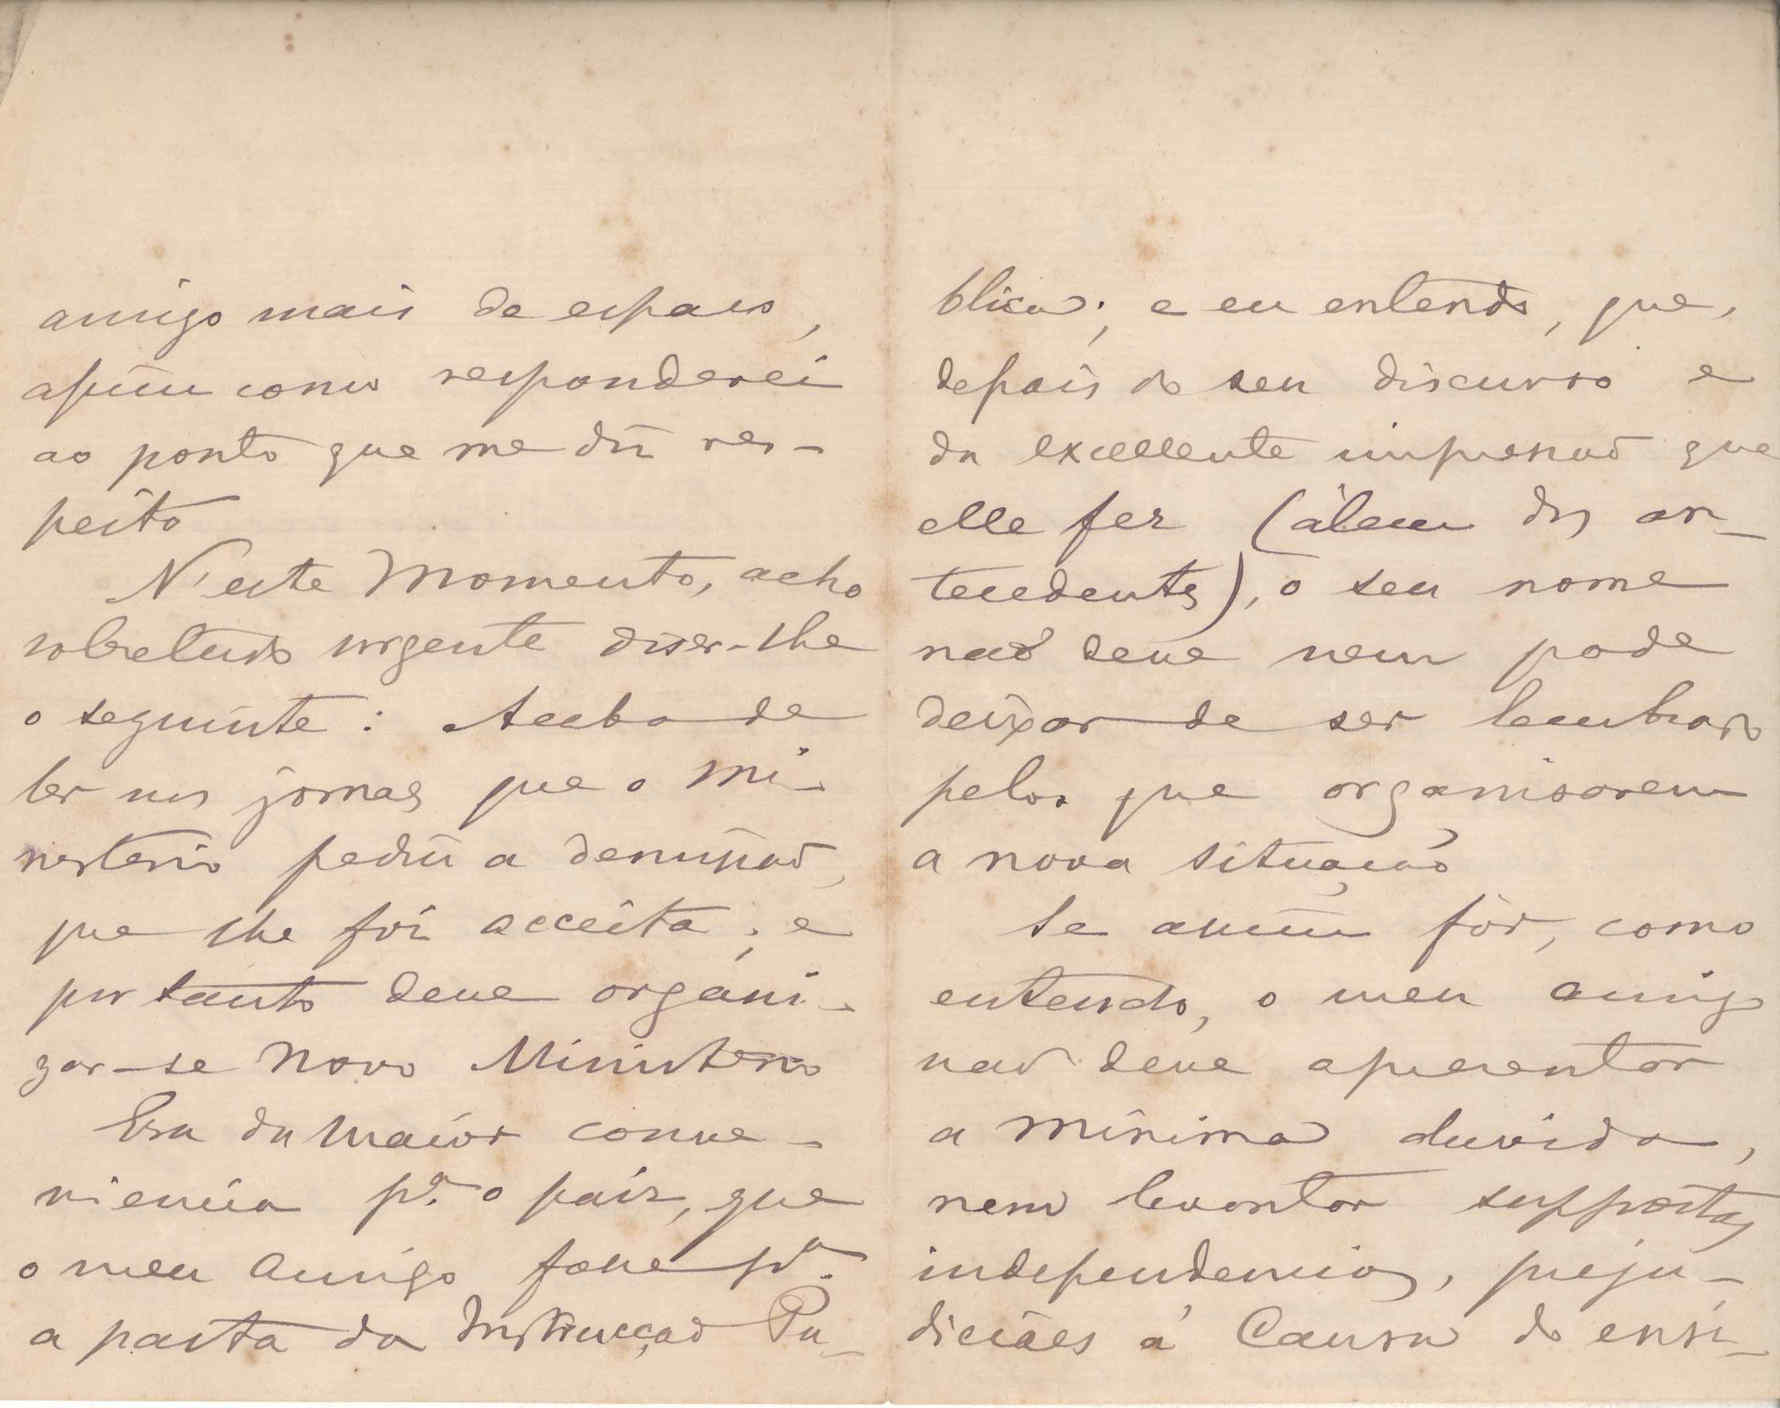 amigo mais de espaço,
assim como responderei
ao ponto que me diz res-
peito
N'este momento, acho
sobretudo urgente dizer-lhe
o seguinte: Acabo de
ler nos jornaes que o mi-
nisterio pediu a demissão,
que lhe foi acceita; e
portanto deve organi-
zar-se novo Ministerio
Era da maior conve-
niencia pª. o paiz, que
o meu amigo fosse pª.
a pasta da Instrucção Pu-
blica; e eu entendo, que,
depois do seu discurso e
da excellente impressão que
elle fez (àlem dos an-
tecedentes), o seu nome
não deve nem pode
deixar de ser lembrado
pelos que organisarem
a nova situação
Se assim fôr, como
entendo, o meu amigo
não deve apresentar
a minima duvida,
nem levantar suppostas
independencias, preju-
diciaes á Causa do ensi-